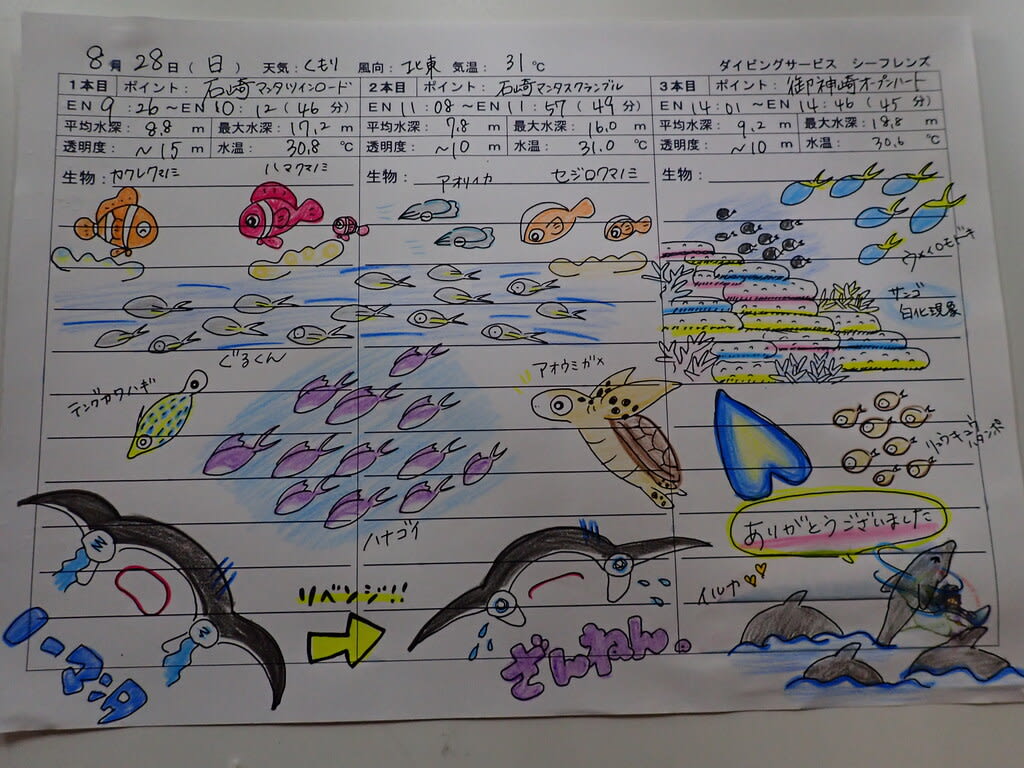 8月28日(日) 天気:くもり 風向:北東 気温:31℃ ダイビングサービス シーフレンズ
1本目 ポイント:石崎マンタツインロード
EN 9:26~EN10:12(46分)
平均水深:8.8 m 最大水深:17.2 m
透明度:~15 m 水温:30.8 ℃
生物:カクレクマノミ ハマクマノミ
2本目 ポイント:石崎マンタスクランブル
EN 11:08~EN 11:57(49分)
平均水深:7.8 m 最大水深:16.0 m
透明度:~10 m 水温:31.0 ℃
生物: アオリイカ セジロクマノミ
3本目 ポイント:御神崎オープンハート
EN 14:01~EN 14:46(45分)
平均水深:9.2 m 最大水深:18.8 m
透明度:~10 m 水温:30.6 ℃
生物:
ウメイロモドキ
サンゴ
白化現象
ぐるくん
テングカワハギ
アオウミガメ
リュウキュウ
ハタンポ
ハナゴイ
ありがとうございました
イルカ
リベンジ!!
ざんねん。